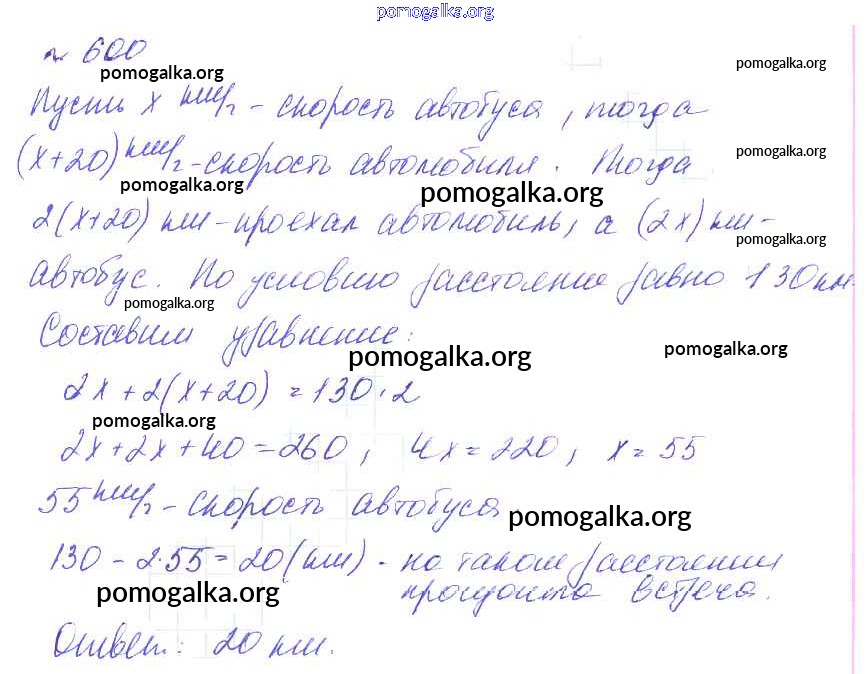 pomogalka.org
№ 600
pomogalka.org pomogalka.org
Пусть x км/г - скорость автобуса, тогда
(x+20) км/г - скорость автомобиля. Тогда pomogalka.org
pomogalka.org pomogalka.org
2(x+20) км - проехал автомобиль, а (2x) км -
pomogalka.org
автобус. По условию расстояние равно 130 км.
pomogalka.org
Составим уравнение:
pomogalka.org pomogalka.org
2x + 2(x+20) = 130·2
pomogalka.org
2x+2x+40=260, 4x=220, x=55
55 км/г - скорость автобуса
pomogalka.org
130 - 2·55 = 20(км) - на таком расстоянии
произойдёт встреча.
pomogalka.org
Ответ: 20 км.